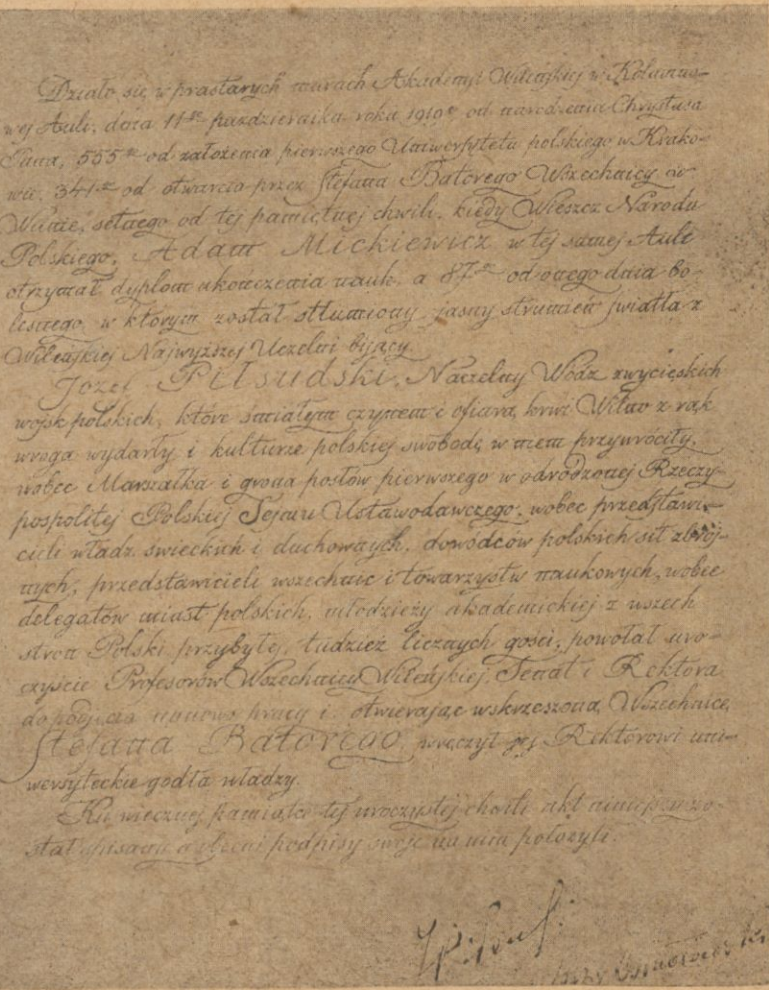 Działo się w prastarych murach Akademji Wileńskiej w Kolumno-
wej Auli, dnia 11go października roku 1919go od narodzenia Chrystusa
Pana, 555go od założenia pierwszego Uniwersytetu polskiego w Krako-
wie, 341go od otwarcia przez Stefana Batorego Wszechnicy w
Wilnie, setnego od tej pamiętnej chwili, kiedy Wieszcz Narodu
Polskiego, Adam Mickiewicz w tej samej Auli
otrzymał dyplom ukończenia nauk, a 87go od onego dnia bo-
lesnego, w którym został stłumiony jasny strumień światła z
Wileńskiej Najwyższej Uczelni bijący
Józef Piłsudski, Naczelny Wódz zwycięskich
wojsk polskich, które śmiałym czynem i ofiarą krwi Wilno z rąk
wroga wydarły i kulturze polskiej swobodę w niem przywróciły,
wobec Marszałka i grona posłów pierwszego w odrodzonej Rzeczy-
pospolitej Polskiej Sejmu Ustawodawczego, wobec przedstawi-
cieli władz świeckich i duchownych, dowódców polskich sił zbroj-
nych, przedstawicieli wszechnic i towarzystw naukowych, wobec
delegatów miast polskich, młodzieży akademickiej z wszech
stron Polski przybyłej, tudzież licznych gości, powołał uro-
czyście Profesorów Wszechnicy Wileńskiej, Senat i Rektora
do podjęcia nanowo pracy i otwierając wskrzeszoną Wszechnicę
Stefana Batorego, wręczył jej Rektorowi uni-
wersyteckie godła władzy.
Ku wiecznej pamiątce tej uroczystej chwili akt niniejszy zo-
stał spisany a obecni podpisy swoje na nim położyli.